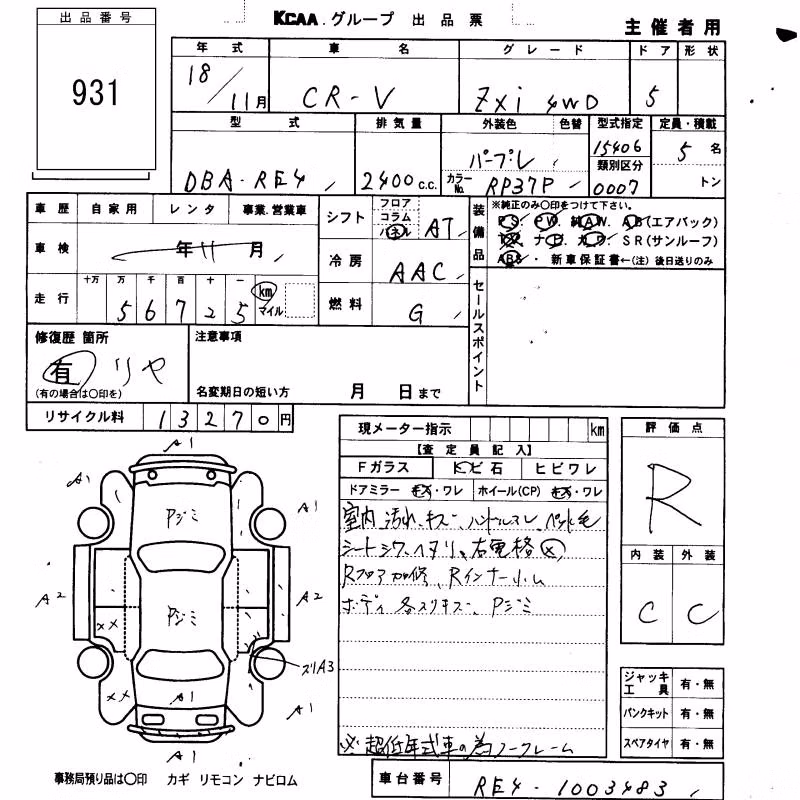 出品番号
931
KCAA グループ 出品票
主催者用
年式 車名 グレード ドア 形状
18/11月 CR-V ZXi 4WD 5
型式 排気量 外装色 色替 型式指定 定員・積載
DBA-RE4 2400c.c. パープレ 15406 5名
カラーNo. RP37P 類別区分 0007 トン
車歴 自家用 レンタ 事業・営業車
車検 年11月
走行 十万 万 千 百 十 一
56725 km マイル
シフト フロア コラム パネル AT
冷房 AAC
燃料 G
装備品
※純正のみ〇印をつけて下さい。
PS. PW. 純AW. AB(エアバック)
TV. ナビ. カワ. SR(サンルーフ)
ABS・ 新車保証書←(注) 後日送りのみ
セールスポイント
修復歴 箇所
有 リヤ
(有の場合は〇印を)
注意事項
名変期日の短い方 月 日まで
リサイクル料 13270円
現メーター指示 km
【査定員記入】
Fガラス トビ石 ヒビワレ
ドアミラー キズ・ワレ ホイール(CP) キズ・ワレ
室内 汚れ、キズ、ハンドルスレ、ペット毛
シートシワ、ヘタリ、右電格×
Rフロア加修、Rインナー小ム
ボディ 各スリキズ、Pジミ
※超低年式車の為ノークレーム
評価点
R
内装 外装
C C
ジャッキ工具 有・無
パンクキット 有・無
スペアタイヤ 有・無
A1
A1 A1
Pジミ
A2 A2
Pジミ
××
ズリA3
×× A1 A1
A1
事務局預り品は〇印 カギ リモコン ナビロム
車台番号 RE4-1003483